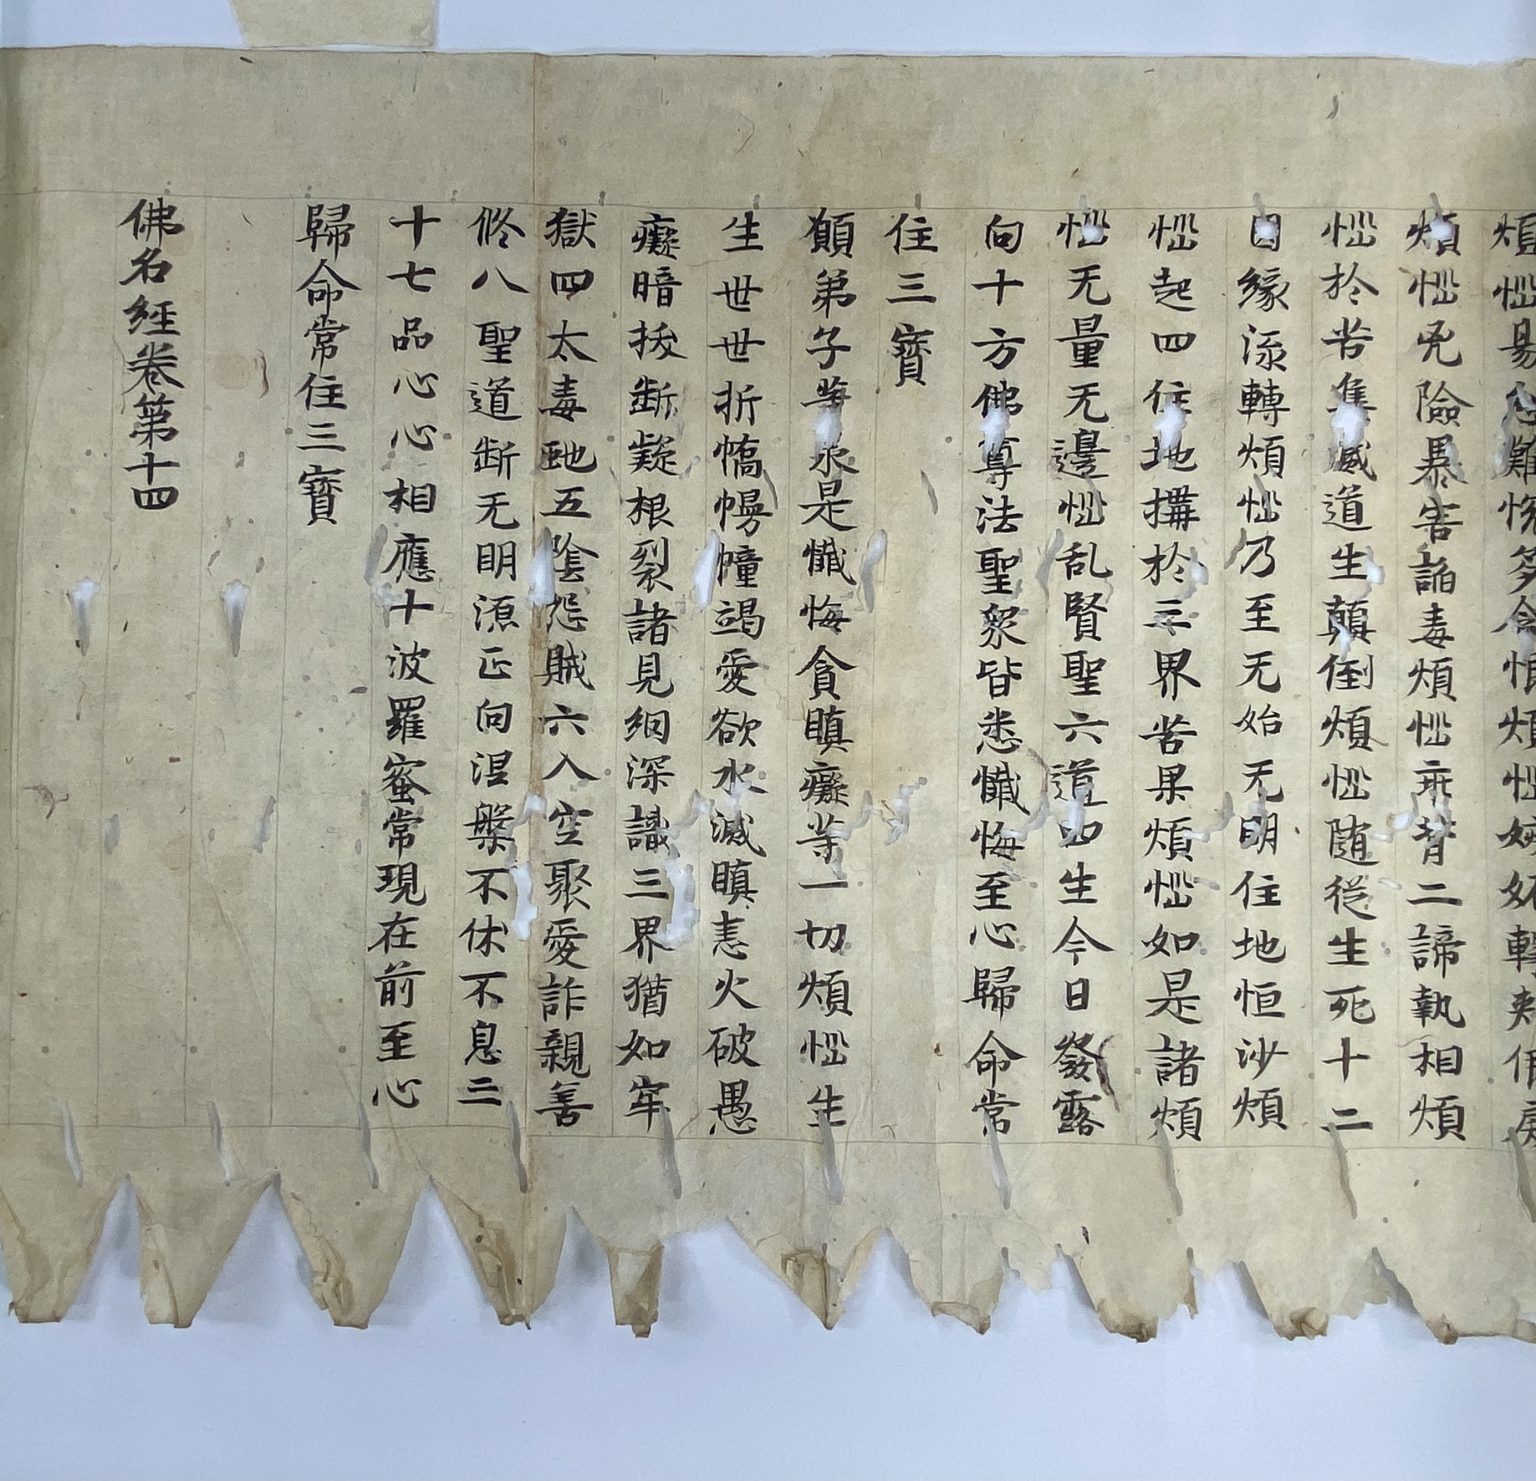 煩惱易忿難悅多含恨煩惱嫉妬輕剌佷戾
煩惱兇險暴害諂毒煩惱乖背二諦執相煩
惱於苦集滅道生顛倒煩惱随從生死十二
因緣流轉煩惱乃至无始无明住地恒沙煩
惱起四住地搆於三界苦果煩惱如是諸煩
惱无量无邊惱乱賢聖六道四生今日發露
向十方佛尊法聖衆皆悉懺悔至心歸命常
住三寶
願弟子等承是懺悔貪瞋癡等一切煩惱生
生世世折憍慢幢竭愛欲水滅瞋恚火破愚
癡暗拔断疑根裂諸見網深識三界猶如牢
獄四太毒虵五陰怨賊六入空聚愛詐親善
修八聖道断无明源正向涅槃不休不息三
十七品心心相應十波羅蜜常現在前至心
歸命常住三寶
佛名經卷第十四